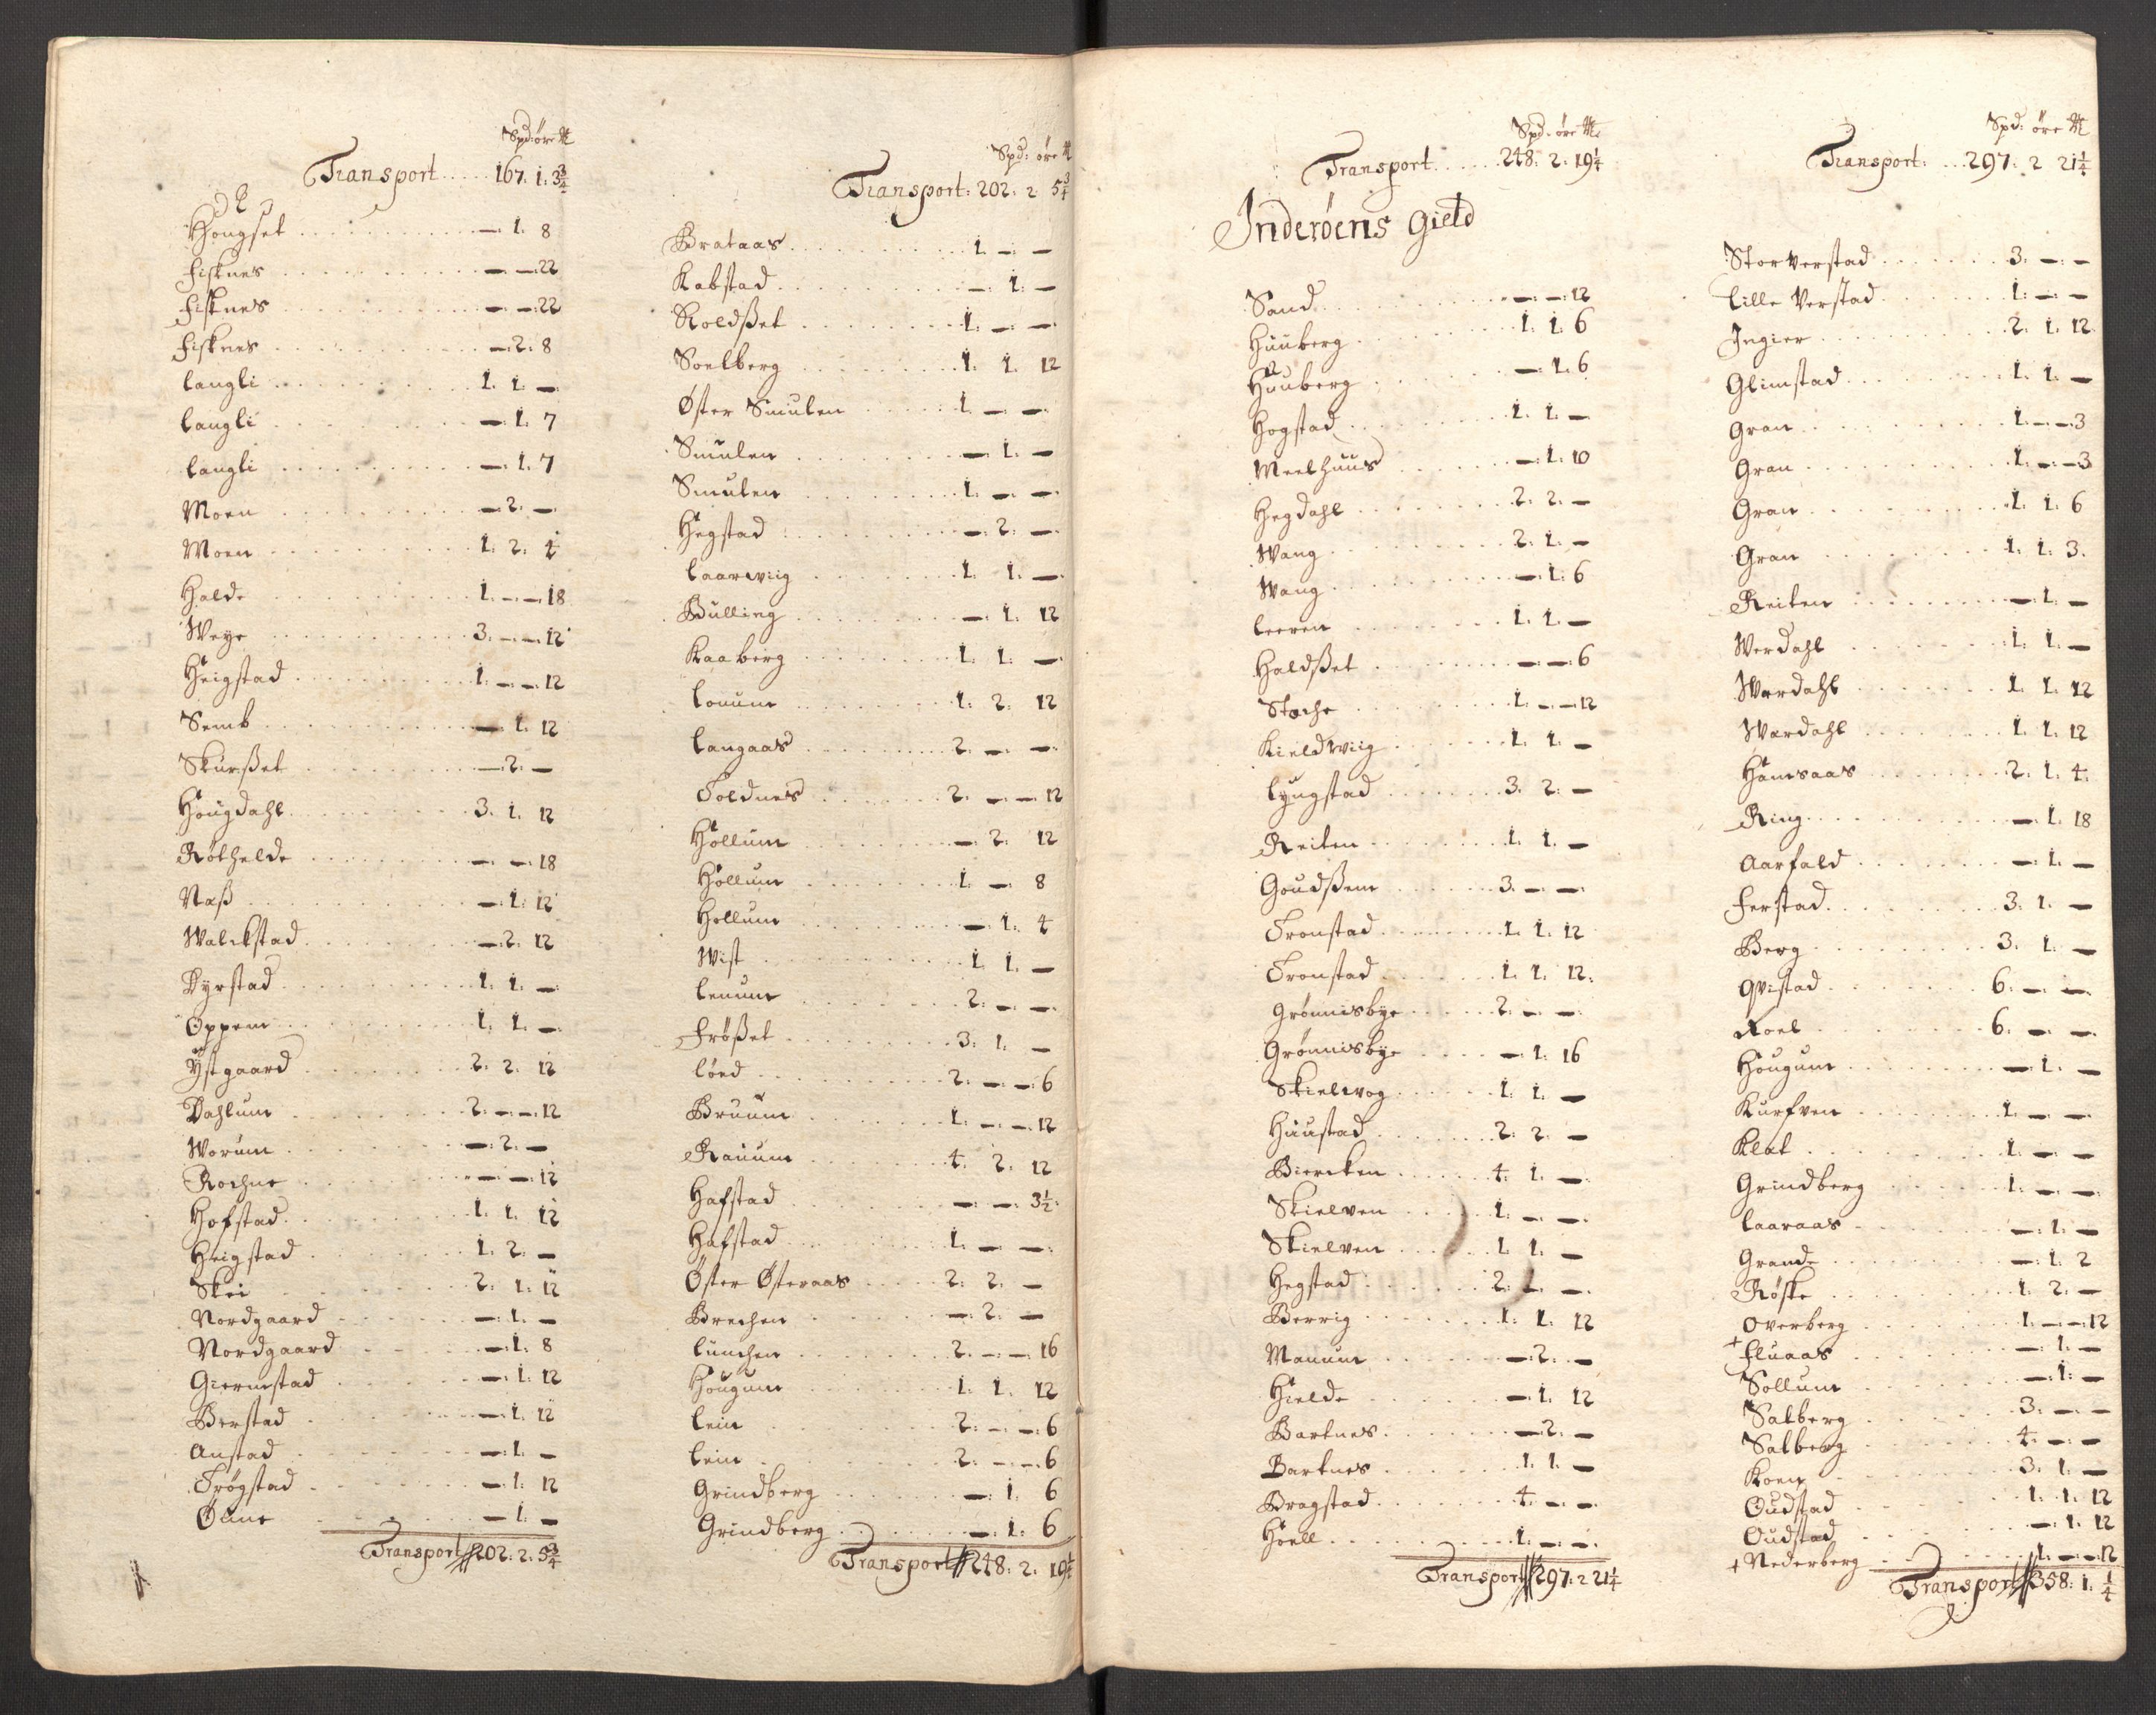 Spd: öre
Transport 167. 1. 3 3/4
Hougset — 1. 8
Fisknes — — 22
Fisknes — — 22
Fisknes — 2. 8
Langli 1. 1. —
Langli — 1. 7
Langli — 1. 7
Moen — 2. —
Moen 1. 2. 4
Halde 1. — — 18
Weye 3. — — 12
Heigstad 1. — — 12
Semb — 1. 12
Skurßet — 2. —
Hougdahl 3. 1. 12
Röthelde — — 18
Naß — 1. 12
Walckstad — 2. 12
Dyrstad 1. 1. —
Oppem 1. 1. —
Ystgaard 2. 2. 12
Dahlum 2. — — 12
Worum — 2. —
Rochne — — 12
Hofstad 1. 1. 12
Heigstad 1. 2. —
Skei 2. 1. 12
Nordgaard — 1. —
Nordgaard — 1. 8
Giermstad — 1. 12
Berstad — 1. 12
Anstad — 1. —
Trögstad — 1. 12
Öune — 1. —
Transport 202. 2. 5 3/4
Spd: öre
Transport: 202. 2 5 3/4
Brataas 1 — —
Kabstad — 1. —
Roldßet 1. — —
Soelberg 1. 1. 12
Øster Smulen 1. — —
Smulen — 1. —
Smulen 1. — —
Hegstad — 2. —
Laarwiig 1. 1. —
Bulling — 1. 12
Kaaberg 1. 1. —
Louum 1. 2. 12
Langaas 2. — —
Toldnes 2. — — 12
Hollum — 2. 12
Hollum 1. — 8
Hollum — 1. 4
Wist 1. 1. —
Lenum 2. — —
Frößet 3. 1. —
Löed 2. — — 6
Bruum 1. — — 12
Rauum 4. 2. 12
Hafstad — — 3 1/2
Hafstad 1. — —
Øster Østeraas 2. 2. —
Brechen — 2. —
Lunchen 2. — — 16
Hougum 1. 1. 12
Lein 2. — — 6
Lein 2. — — 6
Grindberg — 1. 6
Grindberg — 1. 6
Transport 248. 2. 19 1/4
Spd: öre
Transport 248. 2. 19 1/4
Inderöens Gield
Sand — — 12
Huuberg 1. 1. 6
Huuberg — 1. 6
Hogstad 1. 1. —
Meelhuus — 1. 10
Hegdahl 2. 2. —
Wang 2. 1. —
Wang — 1. 6
Leeren 1. 1. —
Haldßet — — 6
Stoche 1. — — 12
Kieldwiig 1. 1. —
Lyngstad 3. 2. —
Reiten 1. 1. —
Goudßem 3. — —
Tronstad 1. 1. 12
Tronstad 1. 1. 12.
Grönnisbye 2. — —
Grönnisbye — 1. 16
Skielwog 1. 1. —
Huustad 2. 2. —
Biercken 4. 1. —
Skielven 1. — —
Skielven 1. 1. —
Hegstad 2. — —
Berrig 1. 1. 12
Manum — 2. —
Hielde — 1. 12
Bartnes — 2. —
Bartnes 1. 1. —
Bragstad 4. — —
Hoell 1. — —
Transport 297. 2 21 1/4
Spd: öre
Transport: 297. 2 21 1/4
Storverstad 3. — —
Lille Verstad 1. — —
Ingier 2. 1. 12
Glimstad 1. 1. —
Gran 1. — — 3
Gran 1. — — 3
Gran 1. 1. 6
Gran 1. 1. 3.
Reiten — 1. —
Werdahl 1. 1. —
Wardahl 1. 1. 12
Wardahl 1. 1. 12
Hamsaas 2. 1. 4.
Ring — 1. 18
Aarfald — 1. —
Ferstad 3. 1. —
Berg 3. 1. —
Qvistad 6. — —
Roel 6. — —
Hougum — 1. —
Kurfven 1. — —
Klat 1. — —
Grindberg 1. — —
Laaraas — 1. —
Grande — 1. 2
Röske 1. 2. —
Overberg 1. — — 12
+ Fluaas — 1. —
Sollum — 1. —
Salberg 3. — —
Salberg 4. — —
Koen 3. 1. —
Oudstad 1. 1. 12
Oudstad — 1. 12
+ Nederberg 1. — — 12
Transport 358. 1. 1/4